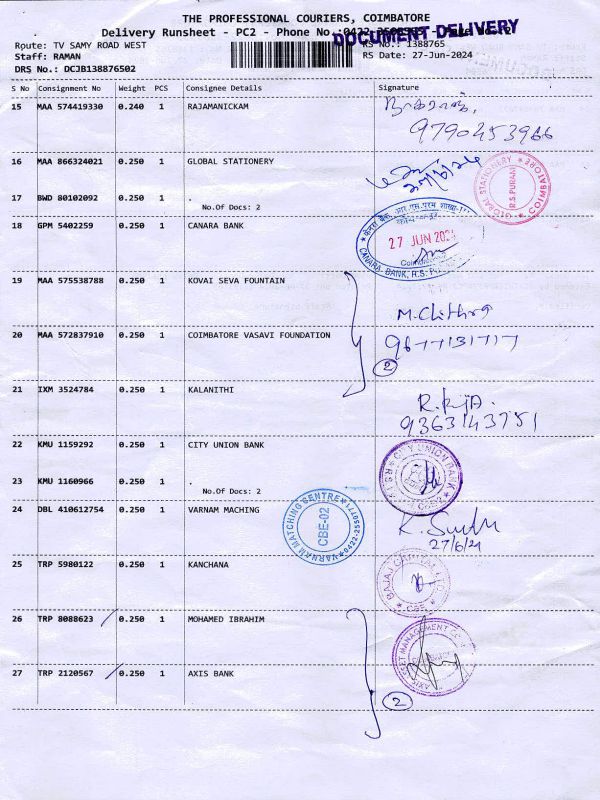 THE PROFESSIONAL COURIERS, COIMBATORE
Delivery Runsheet - PC2 - Phone No.:0422
DOCUMENT DELIVERY
Route: TV SAMY ROAD WEST
RS No.: 1388765
Staff: RAMAN
RS Date: 27-Jun-2024
DRS No.: DCJB138876502
S No Consignment No Weight PCS Consignee Details Signature
15 MAA 574419330 0.240 1 RAJAMANICKAM
9790453966
16 MAA 866324021 0.250 1 GLOBAL STATIONERY
GLOBAL STATIONERY * COIMBATORE * R.S.PURAM
17 BWD 80102092 0.250 1 .
No.Of Docs: 2
18 GPM 5402259 0.250 1 CANARA BANK
27 JUN 202
CANARA BANK, R.S. PU
19 MAA 575538788 0.250 1 KOVAI SEVA FOUNTAIN
M.Chithra
20 MAA 572837910 0.250 1 COIMBATORE VASAVI FOUNDATION
9677131717
2
21 IXM 3524784 0.250 1 KALANITHI
9363143751
22 KMU 1159292 0.250 1 CITY UNION BANK
CITY UNION BANK
23 KMU 1160966 0.250 1 .
No.Of Docs: 2
24 DBL 410612754 0.250 1 VARNAM MACHING
VARNAM MATCHING CENTRE
CBE-02
27/6/24
25 TRP 5980122 0.250 1 KANCHANA
CBE
26 TRP 8088623 0.250 1 MOHAMED IBRAHIM
27 TRP 2120567 0.250 1 AXIS BANK
2